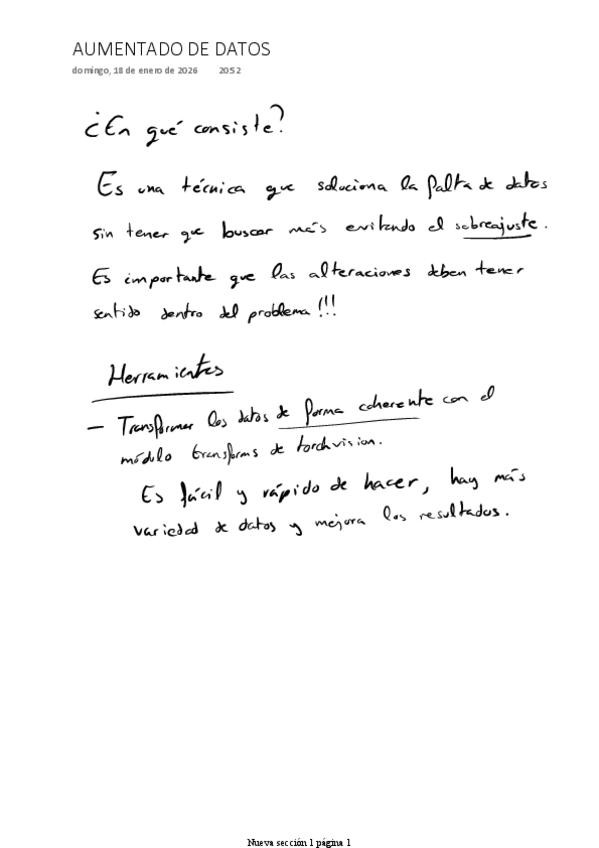 AUMENTADO DE DATOS
domingo, 18 de enero de 2026 20:52
¿En qué consiste?
Es una técnica que soluciona la falta de datos
sin tener que buscar más evitando el sobreajuste.
Es importante que las alteraciones deben tener
sentido dentro del problema!!!
Herramientas
- Transformar los datos de forma coherente con el
módulo transforms de torchvision.
Es fácil y rápido de hacer, hay más
variedad de datos y mejora los resultados.
Nueva sección 1 página 1